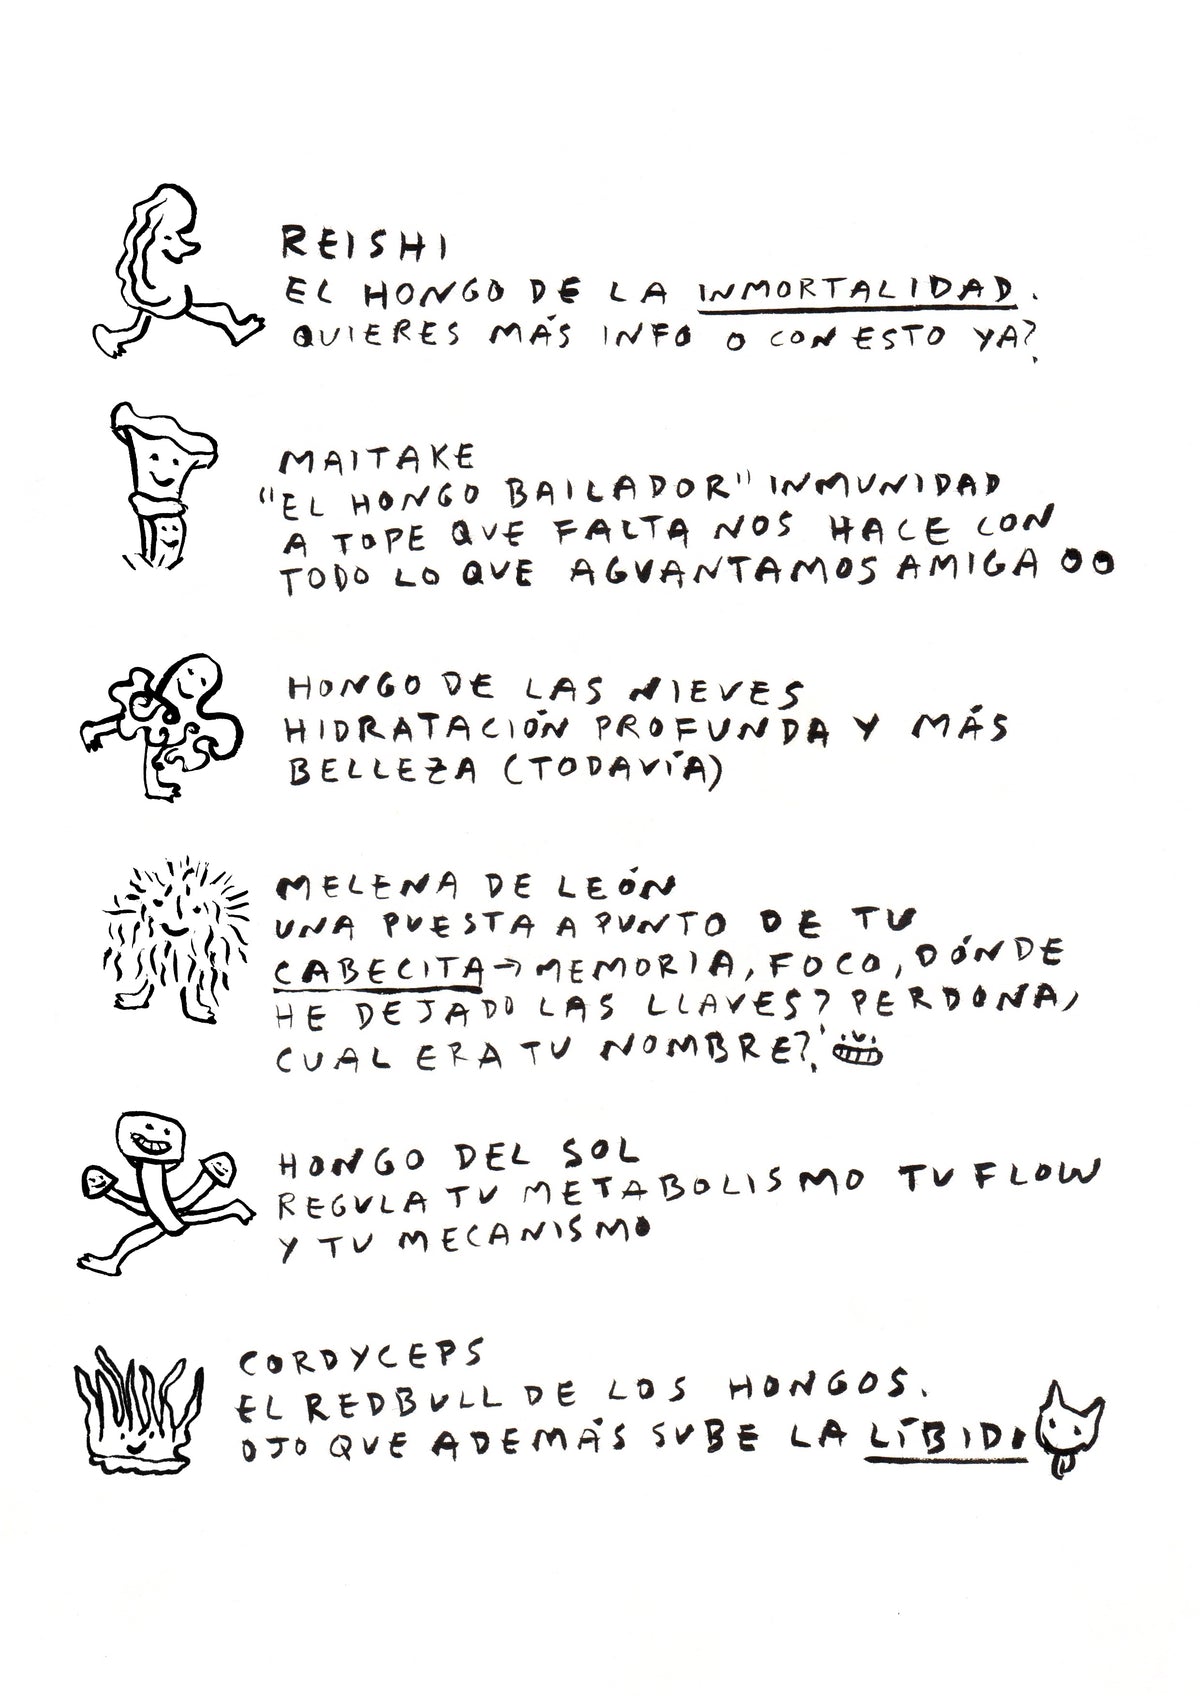 REISHI
EL HONGO DE LA INMORTALIDAD.
QUIERES MÁS INFO O CON ESTO YA?
MAITAKE
"EL HONGO BAILADOR" INMUNIDAD
A TOPE QUE FALTA NOS HACE CON
TODO LO QUE AGUANTAMOS AMIGA OO
HONGO DE LAS NIEVES
HIDRATACIÓN PROFUNDA Y MÁS
BELLEZA (TODAVÍA)
MELENA DE LEÓN
UNA PUESTA A PUNTO DE TU
CABECITA → MEMORIA, FOCO, DÓNDE
HE DEJADO LAS LLAVES? PERDONA,
CUAL ERA TU NOMBRE?
HONGO DEL SOL
REGULA TU METABOLISMO TU FLOW
Y TU MECANISMO
CORDYCEPS
EL REDBULL DE LOS HONGOS.
OJO QUE ADEMÁS SUBE LA LÍBIDO